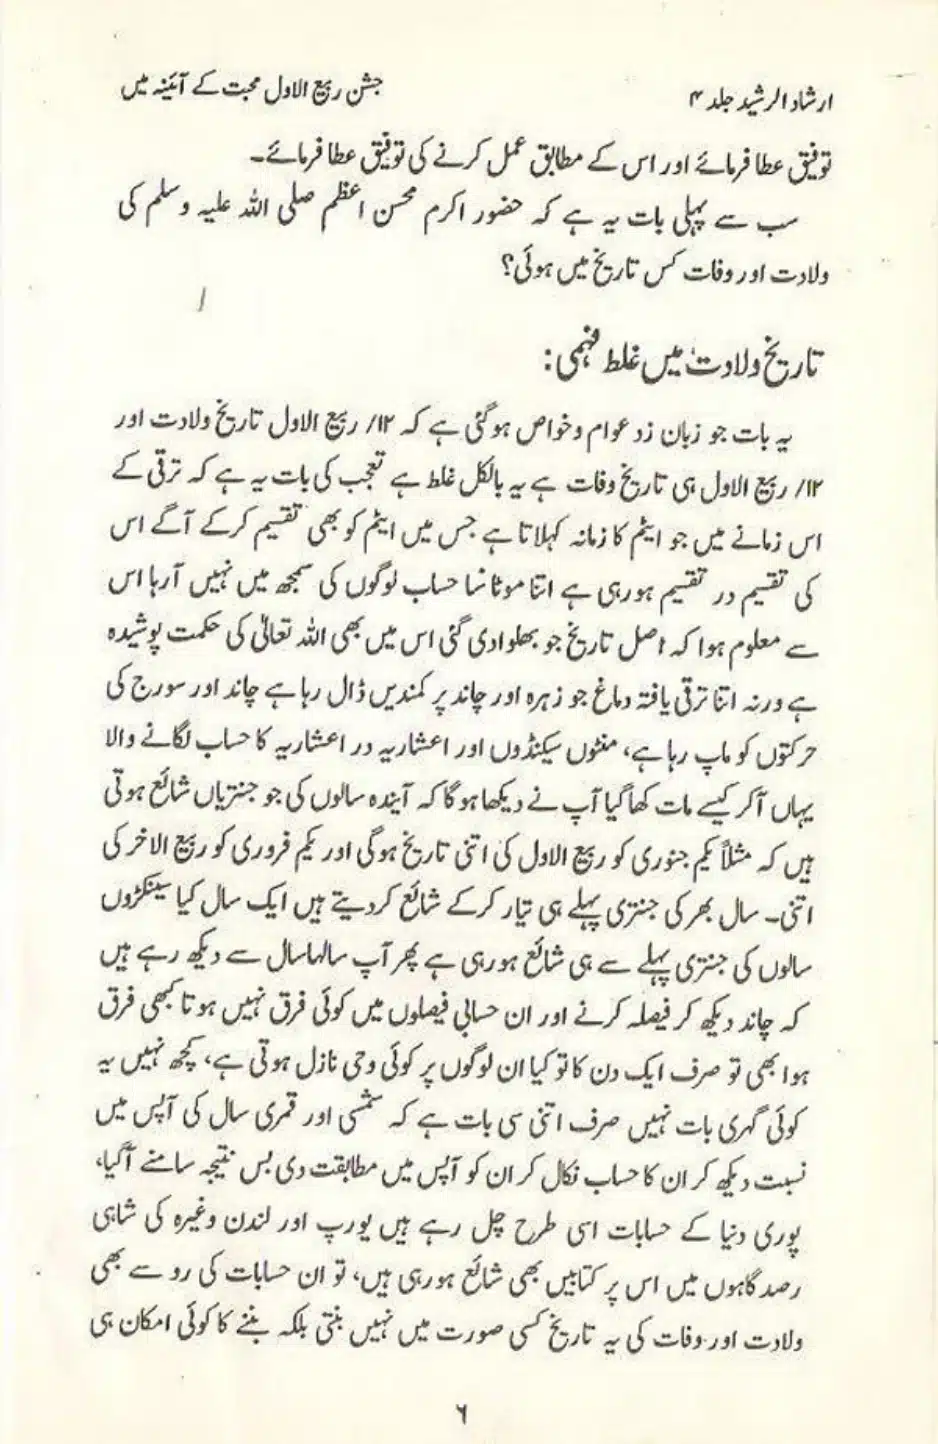 ارشاد الرشید جلد ۴
جشن ربیع الاول محبت کے آئینہ میں
توفیق عطا فرمائے اور اس کے مطابق عمل کرنے کی توفیق عطا فرمائے۔
سب سے پہلی بات یہ ہے کہ حضور اکرم محسن اعظم صلی اللہ علیہ وسلم کی
ولادت اور وفات کس تاریخ میں ہوئی؟
تاریخ ولادت میں غلط فہمی:
یہ بات جو زبان زد عوام و خواص ہوگئی ہے کہ ۱۲/ ربیع الاول تاریخ ولادت اور
۱۲/ ربیع الاول ہی تاریخ وفات ہے یہ بالکل غلط ہے تعجب کی بات یہ ہے کہ ترقی کے
اس زمانے میں جو ایٹم کا زمانہ کہلاتا ہے جس میں ایٹم کو بھی تقسیم کرکے آگے اس
کی تقسیم در تقسیم ہورہی ہے اتنا موٹا سا حساب لوگوں کی سمجھ میں نہیں آرہا اس
سے معلوم ہوا کہ اصل تاریخ جو بھلوادی گئی اس میں بھی اللہ تعالیٰ کی حکمت پوشیدہ
ہے ورنہ اتنا ترقی یافتہ دماغ جو زہرہ اور چاند پر کمندیں ڈال رہا ہے چاند اور سورج کی
حرکتوں کو ماپ رہا ہے، منٹوں سیکنڈوں اور اعشاریہ در اعشاریہ کا حساب لگانے والا
یہاں آکر کیسے مات کھا گیا آپ نے دیکھا ہوگا کہ آیندہ سالوں کی جو جنتریاں شائع ہوتی
ہیں کہ مثلاً یکم جنوری کو ربیع الاول کی اتنی تاریخ ہوگی اور یکم فروری کو ربیع الاخر کی
اتنی۔ سال بھر کی جنتری پہلے ہی تیار کرکے شائع کردیتے ہیں ایک سال کیا سینکڑوں
سالوں کی جنتری پہلے سے ہی شائع ہورہی ہے پھر آپ سالہاسال سے دیکھ رہے ہیں
کہ چاند دیکھ کر فیصلہ کرنے اور ان حسابی فیصلوں میں کوئی فرق نہیں ہوتا کبھی فرق
ہوا بھی تو صرف ایک دن کا تو کیا ان لوگوں پر کوئی وحی نازل ہوتی ہے، کچھ نہیں یہ
کوئی گہری بات نہیں صرف اتنی سی بات ہے کہ شمسی اور قمری سال کی آپس میں
نسبت دیکھ کر ان کا حساب نکال کر ان کو آپس میں مطابقت دی بس نتیجہ سامنے آگیا،
پوری دنیا کے حسابات اسی طرح چل رہے ہیں یورپ اور لندن وغیرہ کی شاہی
رصدگاہوں میں اس پر کتابیں بھی شائع ہورہی ہیں، تو ان حسابات کی رو سے بھی
ولادت اور وفات کی یہ تاریخ کسی صورت میں نہیں بنتی بلکہ بننے کا کوئی امکان ہی
۶